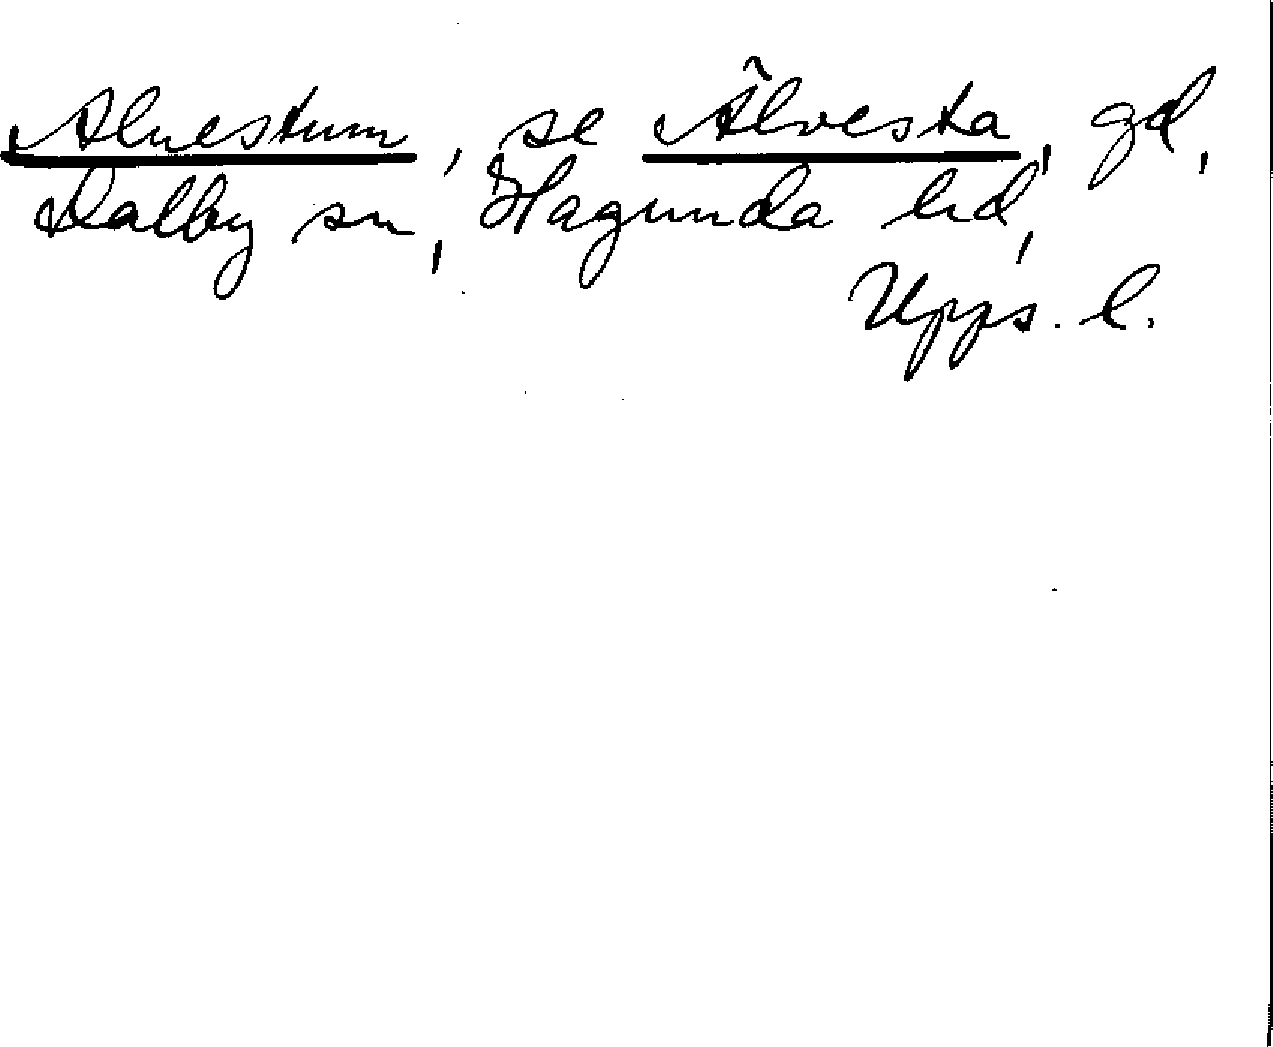 Aluestum, se Älvesta, gd,
Dalby sn, Hagunda hd,
Upps. l.